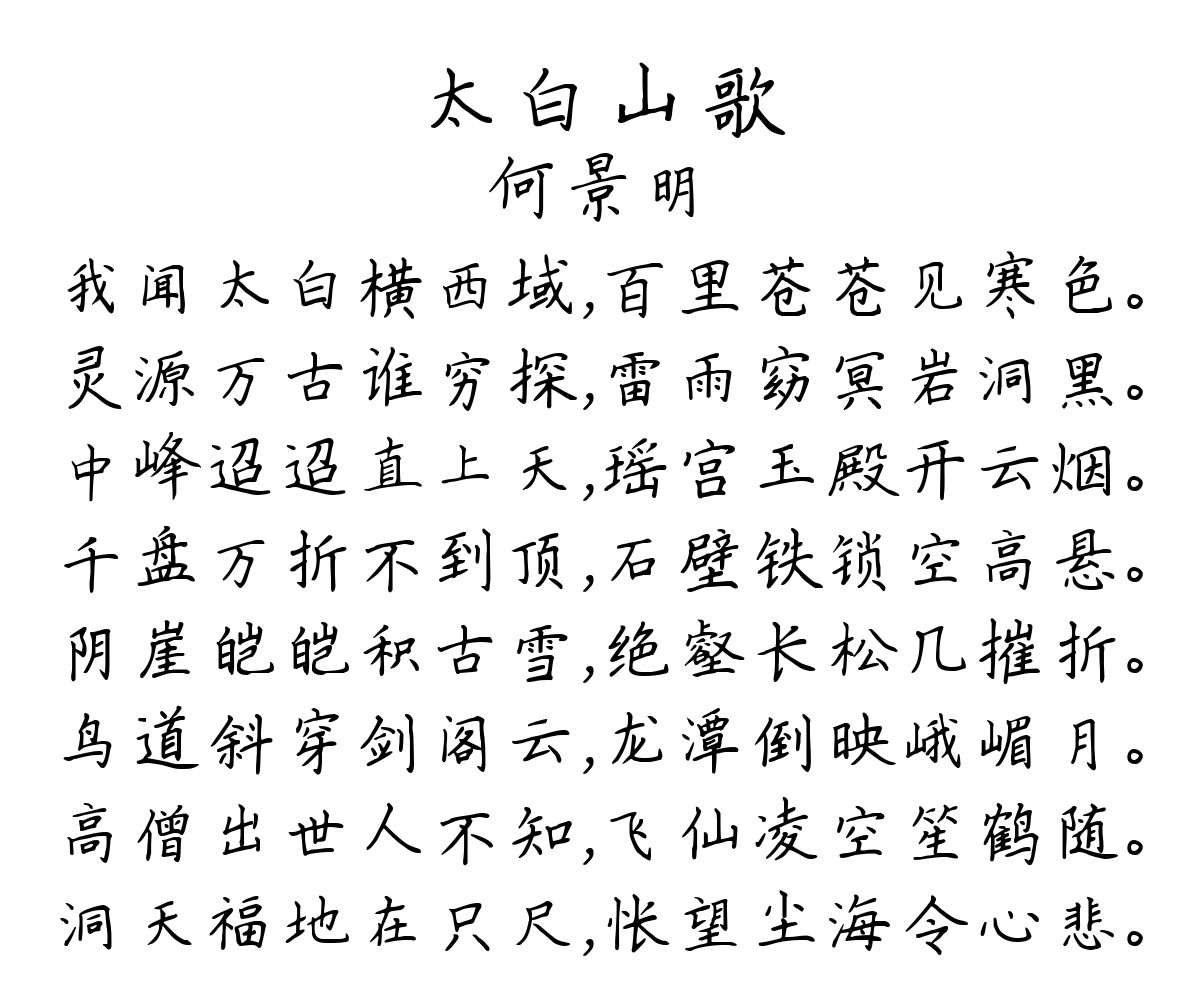 太白山歌
何景明
我闻太白横西域,百里苍苍见寒色。
灵源万古谁穷探,雷雨窈冥岩洞黑。
中峰迢迢直上天,瑶宫玉殿开云烟。
千盘万折不到顶,石壁铁锁空高悬。
阴崖皑皑积古雪,绝壑长松几摧折。
鸟道斜穿剑阁云,龙潭倒映峨嵋月。
高僧出世人不知,飞仙凌空笙鹤随。
洞天福地在只尺,怅望尘海令心悲。